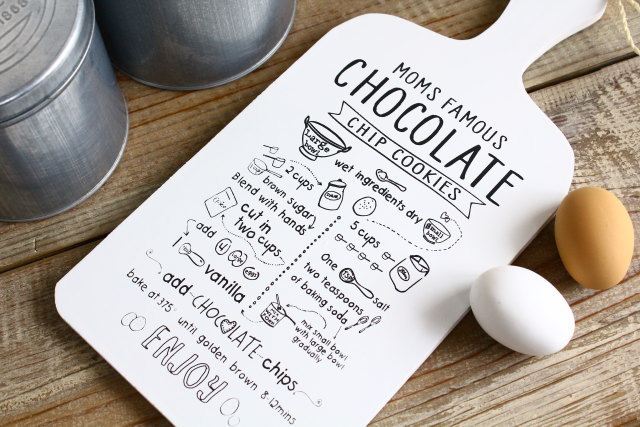 MOMS FAMOUS
CHOCOLATE
CHIP COOKIES
Large
bowl
wet ingredients dry
small
bowl
2 cups
brown sugar
Blend with hands
cut in
two cups
add 4 eggs
1 vanilla
5 cups
One salt
two teaspoons
of baking soda
mix small bowl
with large bowl
gradually
add CHOCOLATE chips
bake at 375° until golden brown 8-12mins
ENJOY